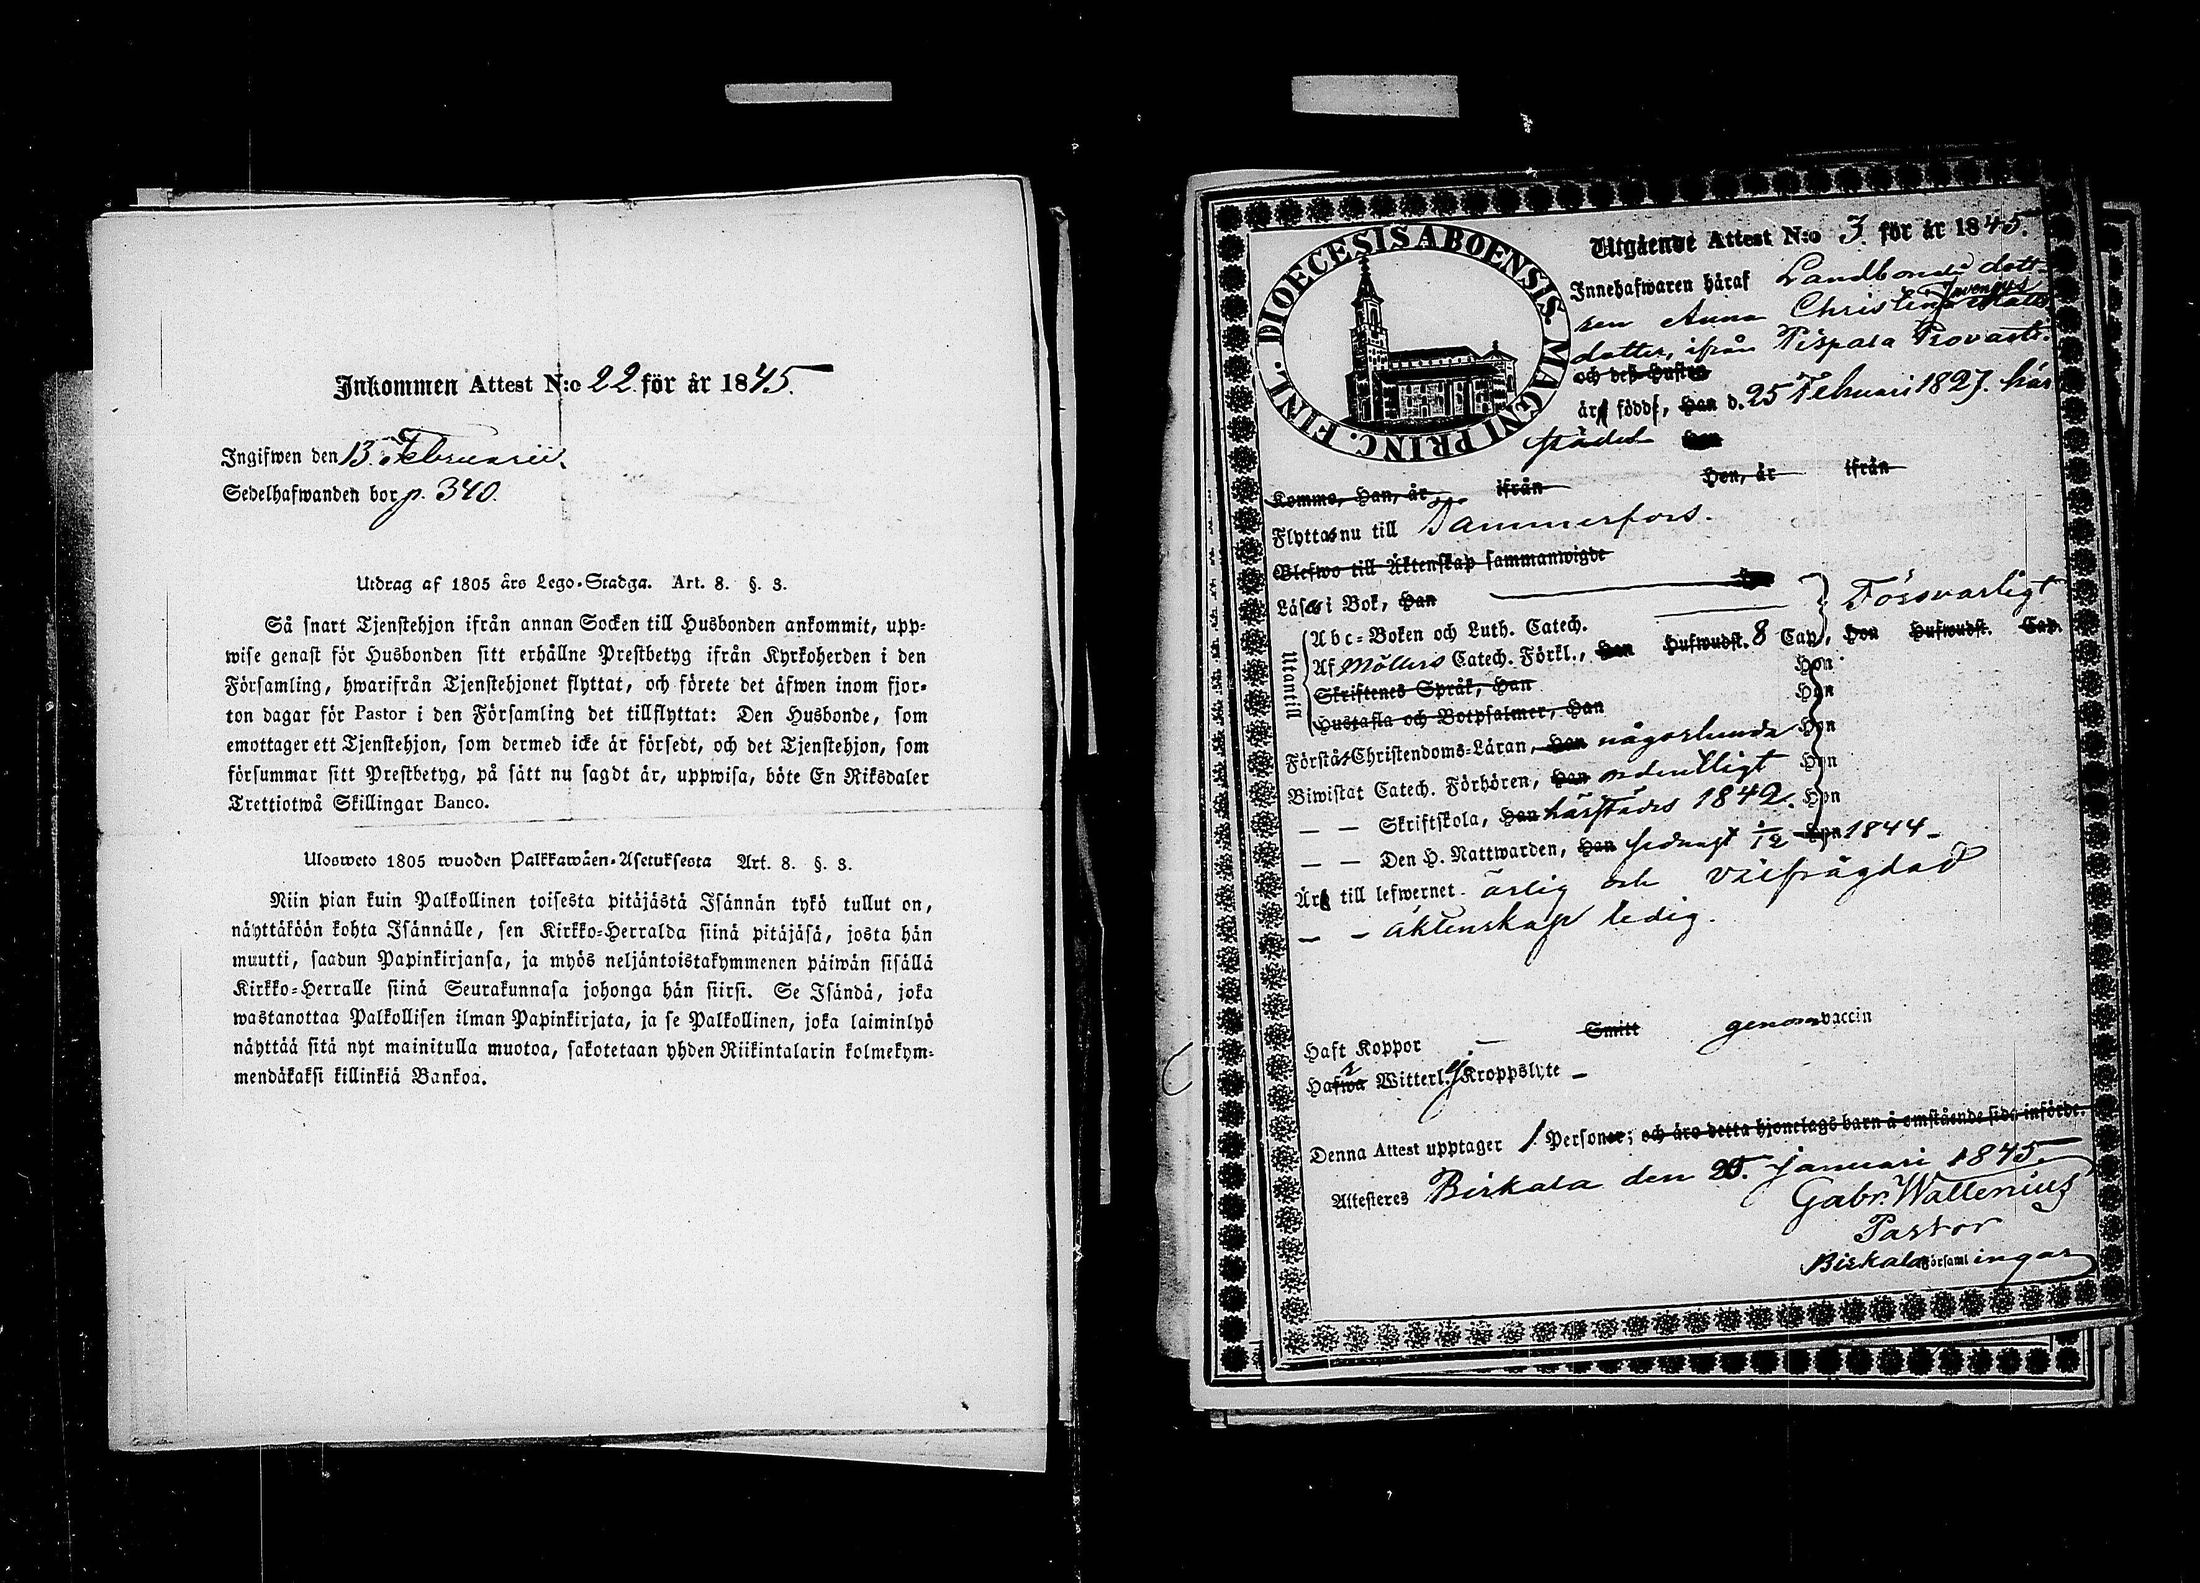 Inkommen Attest N:o 22 för år 1845.
Ingifwen den 13 Februarii.
Sedelhafwanden bor p. 340.
Utdrag af 1805 års Lego-Stadga. Art. 8. §. 3.
Så snart Tjenstehjon ifrån annan Socken till Husbonden ankommit, upp-
wise genast för Husbonden sitt erhållne Prestbetyg ifrån Kyrkoherden i den
Församling, hwarifrån Tjenstehjonet flyttat, och förete det äfwen inom fjor-
ton dagar för Pastor i den Församling det tillflyttat: Den Husbonde, som
emottager ett Tjenstehjon, som dermed icke är försedt, och det Tjenstehjon, som
försummar sitt Prestbetyg, på sätt nu sagdt är, uppwisa, böte En Riksdaler
Trettiotwå Skillingar Banco.
Ulosweto 1805 wuoden Palkkawäen-Asetuksesta Art. 8. §. 3.
Niin pian kuin Palkollinen toisesta pitäjästä Isännän tykö tullut on,
näyttäköön kohta Isännälle, sen Kirkko-Herralda siinä pitäjäsä, josta hän
muutti, saadun Papinkirjansa, ja myös neljäntoistakymmenen päiwän sisällä
Kirkko-Herralle siinä Seurakunnasa johonga hän siirsi. Se Isändä, joka
wastanottaa Palkollisen ilman Papinkirjata, ja se Palkollinen, joka laiminlyö
näyttää sitä nyt mainitulla muotoa, sakotetaan yhden Riikintalarin kolmekym-
mendäkaksi killinkiä Bankoa.
DIOECESIS ABOENSIS. MAGNI PRINC. FINL.
Utgående Attest N:o 3. för år 1845.
Innehafwaren häraf Landbonde dott-
ren Anna Christina
dotter, ifrån Pispala Provasti.
och des Hustru
är född, Han d. 25 Februari 1827. här
städes Hon
Komme, Han, år ifrån Hon, år ifrån
Flyttas nu till Tammerfors.
Blefwo till Äktenskap sammanwigde
Läser i Bok, Han Hon
Försvarligt
Utantill
Abc-Boken och Luth. Catech.
Af Möllers Catech. Förkl., Han Hufwudst. 8 Cap., Hon Hufwudst. Cap.
Skriftenes Språk, Han Hon
Hustafla och Botpsalmer, Han Hon
Förstår Christendoms-Läran, Han någorlunda Hon
Biwistat Catech. Förhören, Han ordentligt Hon
— — Skriftskola, Han härstädes 1842. Hon
— — Den H. Nattwarden, Han sednast 1/12 Hon 1844
Är till lefwernet ärlig och välfrägdad
— — äktenskap ledig.
Haft Koppor — Smitt genom vaccin
Hafwa Witterl. Kroppslyte —
Denna Attest upptager 1 Personer; och äro detta hjonelags barn å omstående sida införde.
Attesteres Birkala den 25. januari 1845.
Gabr. Wallenius
Pastor
Birkala Församlingar